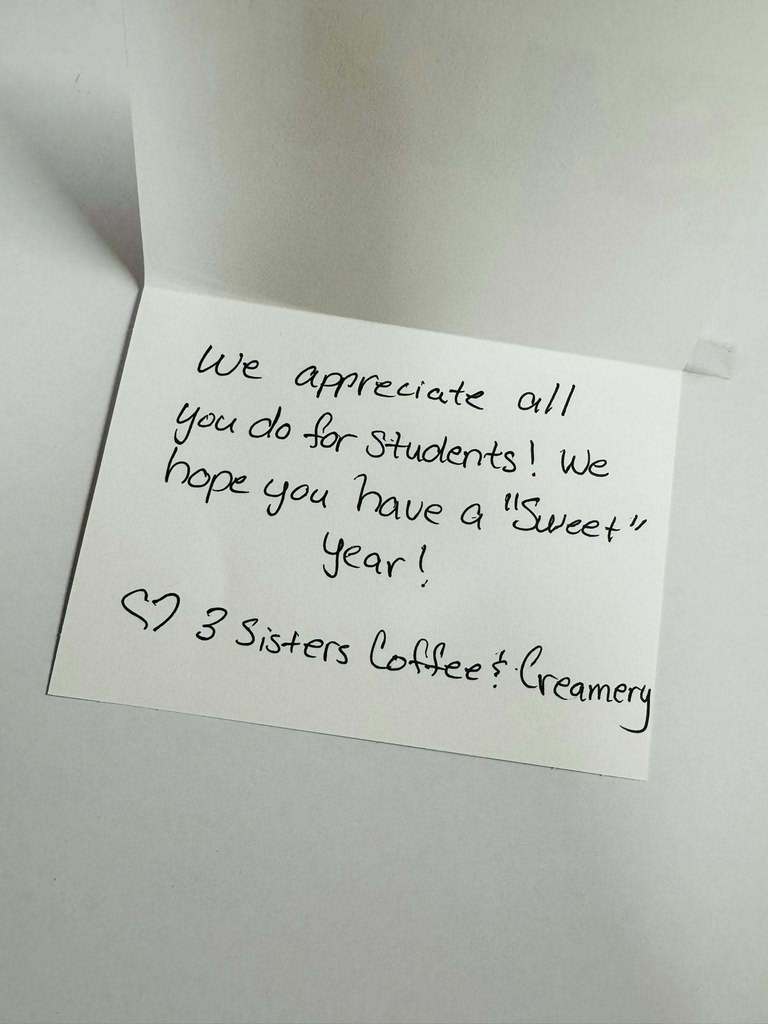 We appreciate all
you do for students! We
hope you have a "Sweet"
year!
♡ 3 Sisters Coffee & Creamery